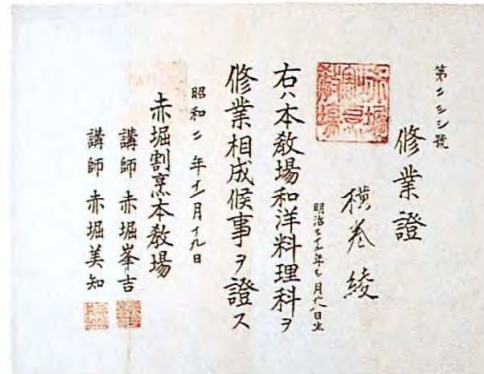 第 號
修業證
横巻綾
明治 年 月 日生
右ハ本教場和洋料理科ヲ
修業相成候事ヲ證ス
昭和二年 月十九日
赤堀割烹本教場
講師 赤堀峯吉
講師 赤堀美知